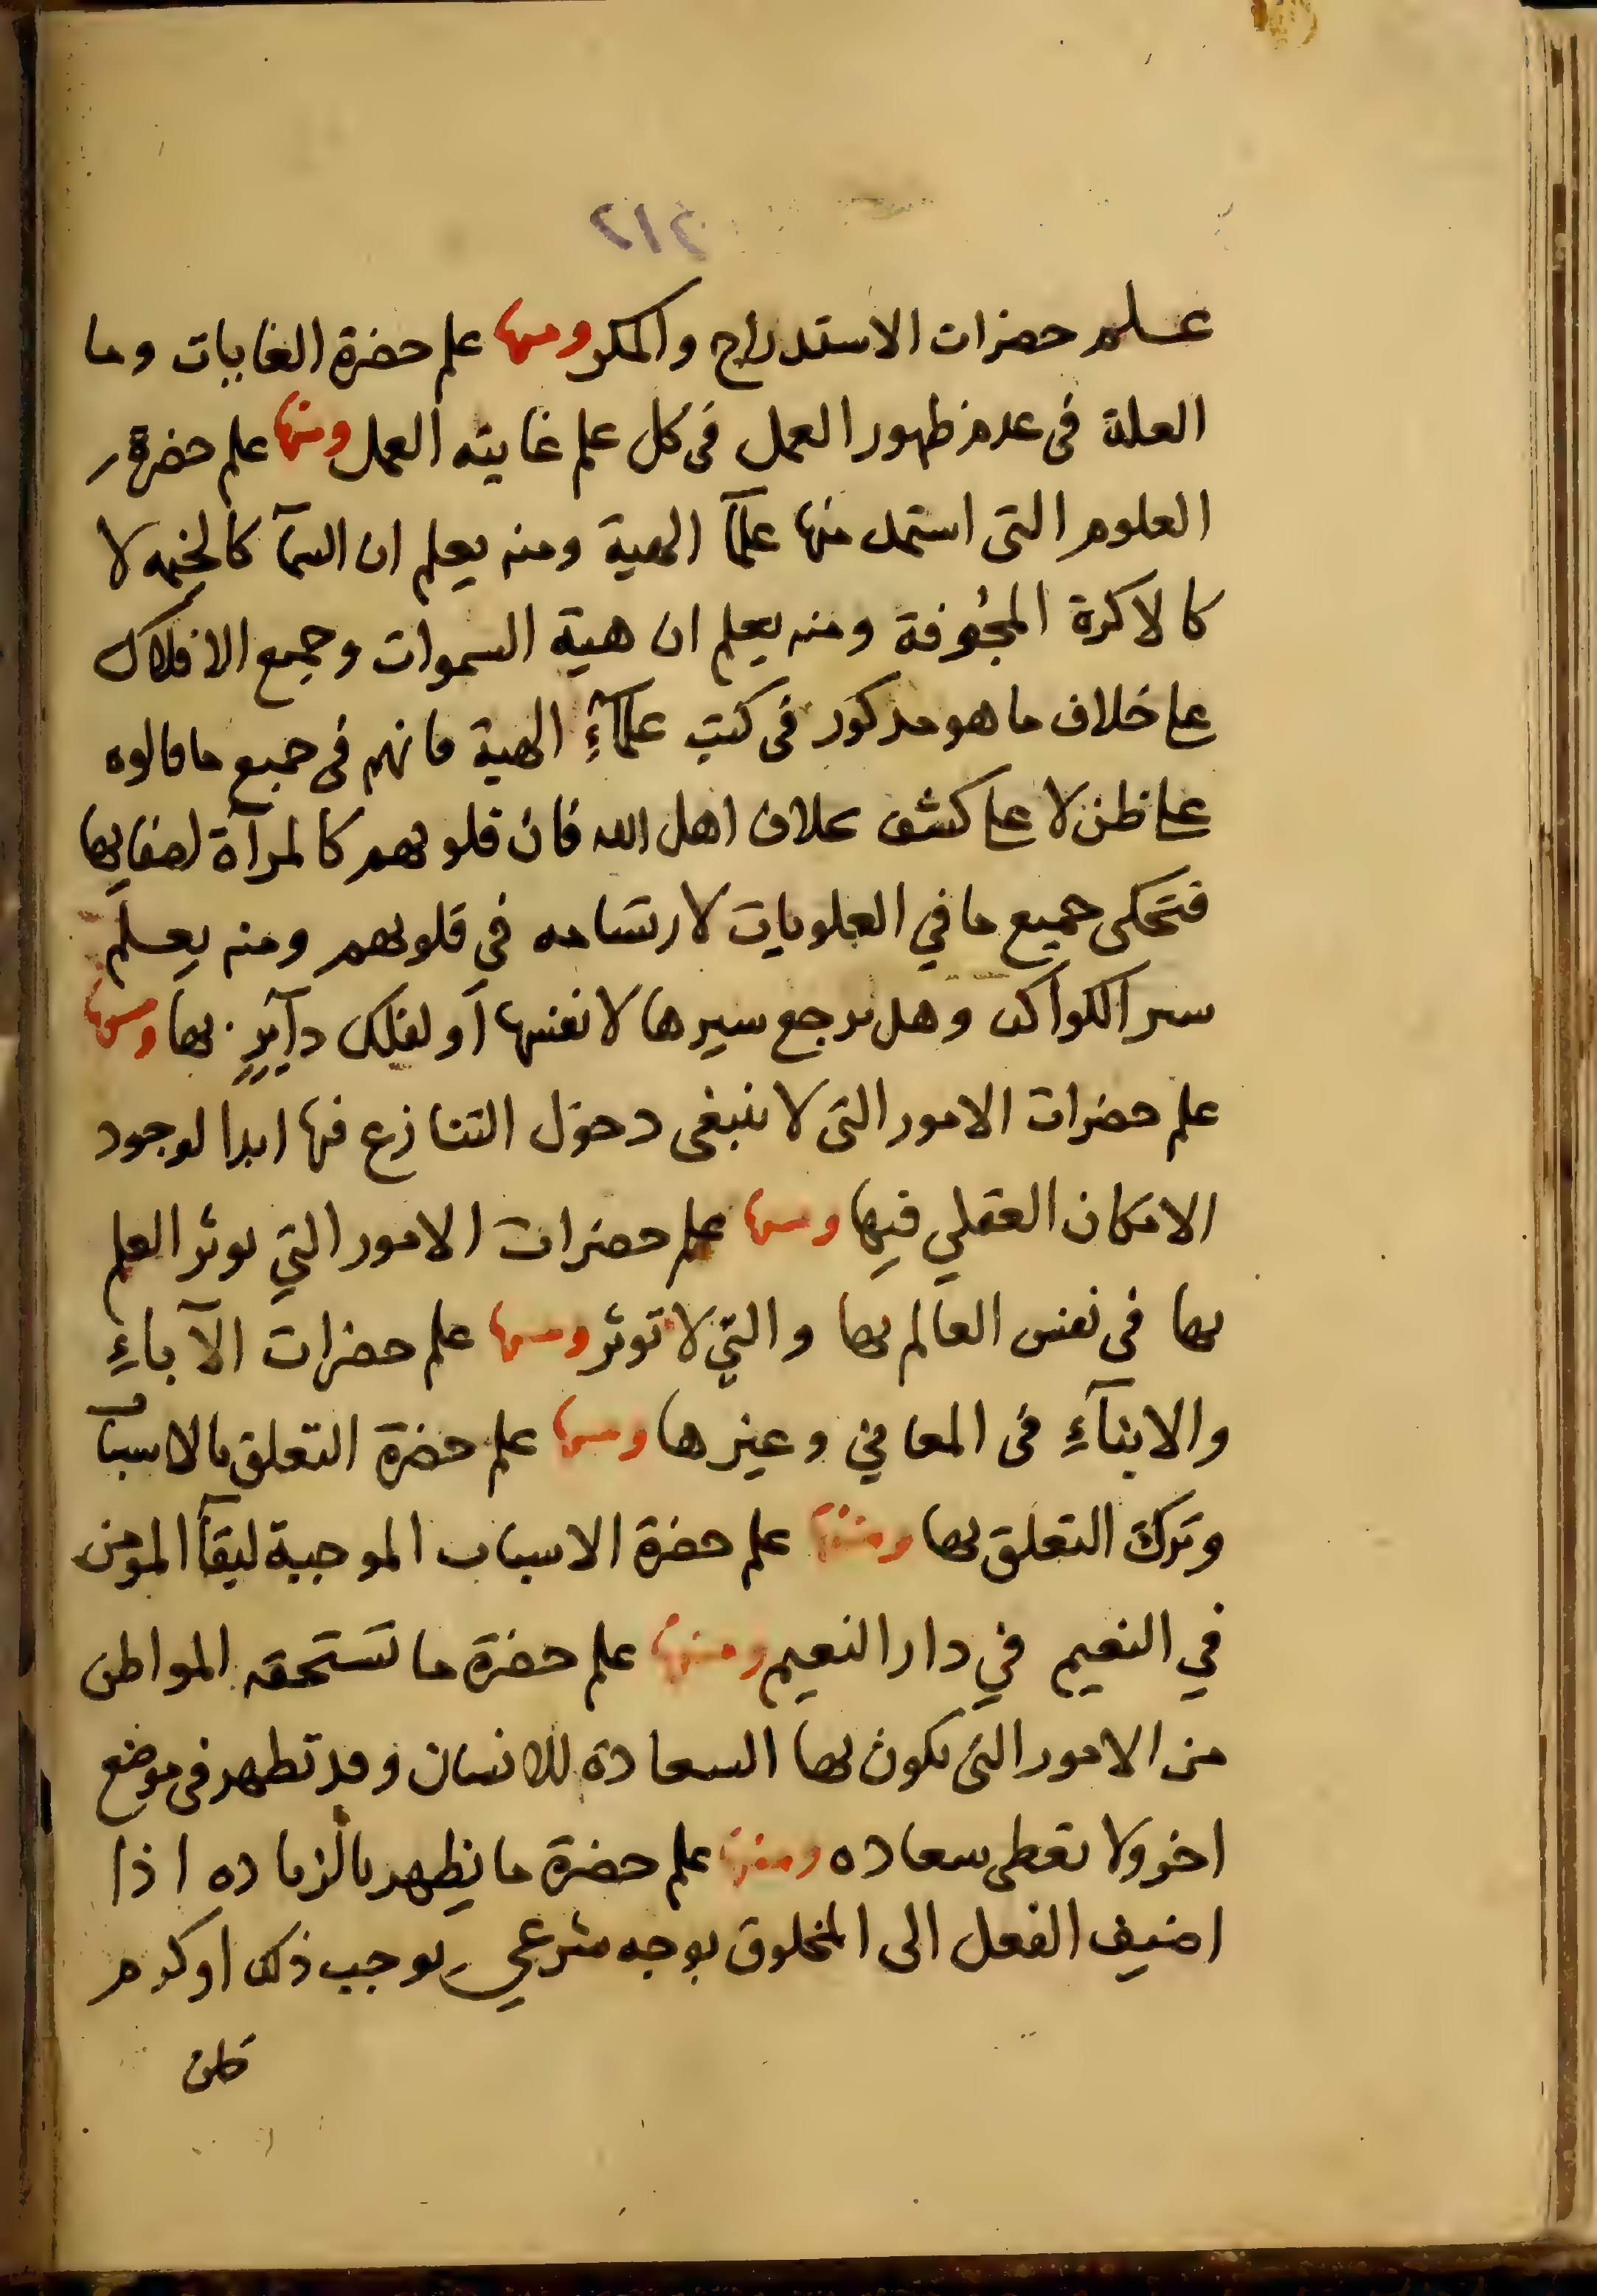 علم حضرات الاستدراج والمكر ومنها علم حضرة الغايات وما
العلة فى عدم ظهور العمل فى كل علم غايته العمل ومنها علم حضرة
العلوم التى استمد منها علمآ الهية ومنه يعلم ان السمآ كالخيمه لا
كالاكرة المجوفة ومنه يعلم ان هية السموات وجميع الافلاك
على خلاف ما هو مذكور فى كتب علمآء الهية فانهم فى جميع ما قالوه
على ظن لا على كشف بخلاف اهل الله فان قلوبهم كالمرآة لصفايها
فتحكى جميع ما في العلويات لارتسامه في قلوبهم ومنه يعلم
سير الكواكب وهل يرجع سيرها لانفسها او لفلك دآير بها ومنها
علم حضرات الامور التى لا ينبغى دخول التنازع فيها ابدا لوجود
الامكان العقلي فيها ومنها علم حضرات الامور التي يوثر العلم
بها فى نفس العالم بها والتي لا توثر ومنها علم حضرات الآباء
والابنآء فى المعاني وغيرها ومنها علم حضرة التعلق بالاسباب
وترك التعلق بها ومنها علم حضرة الاسباب الموجبة لبقآ المومن
في النعيم في دار النعيم ومنها علم حضرة ما تستحقه المواطن
من الامور التى تكون بها السعادة للانسان وقد تظهر فى موضع
اخر ولا تعطى سعاده ومنها علم حضرة ما يظهر بالزياده اذا
اضيف الفعل الى المخلوق بوجه شرعي يوجب ذلك او كرم